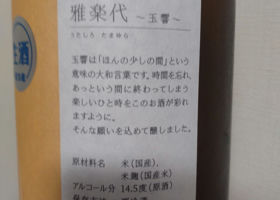 雅楽代 ～玉響～
うたしろ たまゆら
玉響は「ほんの少しの間」という
意味の大和言葉です。時間を忘れ、
あっという間に終わってしまう
楽しいひと時をこのお酒が彩れ
ますように。
そんな願いを込めて醸しました。
原材料名 米(国産)、
米麹(国産)
アルコール分 14.5度(原酒)
生酒